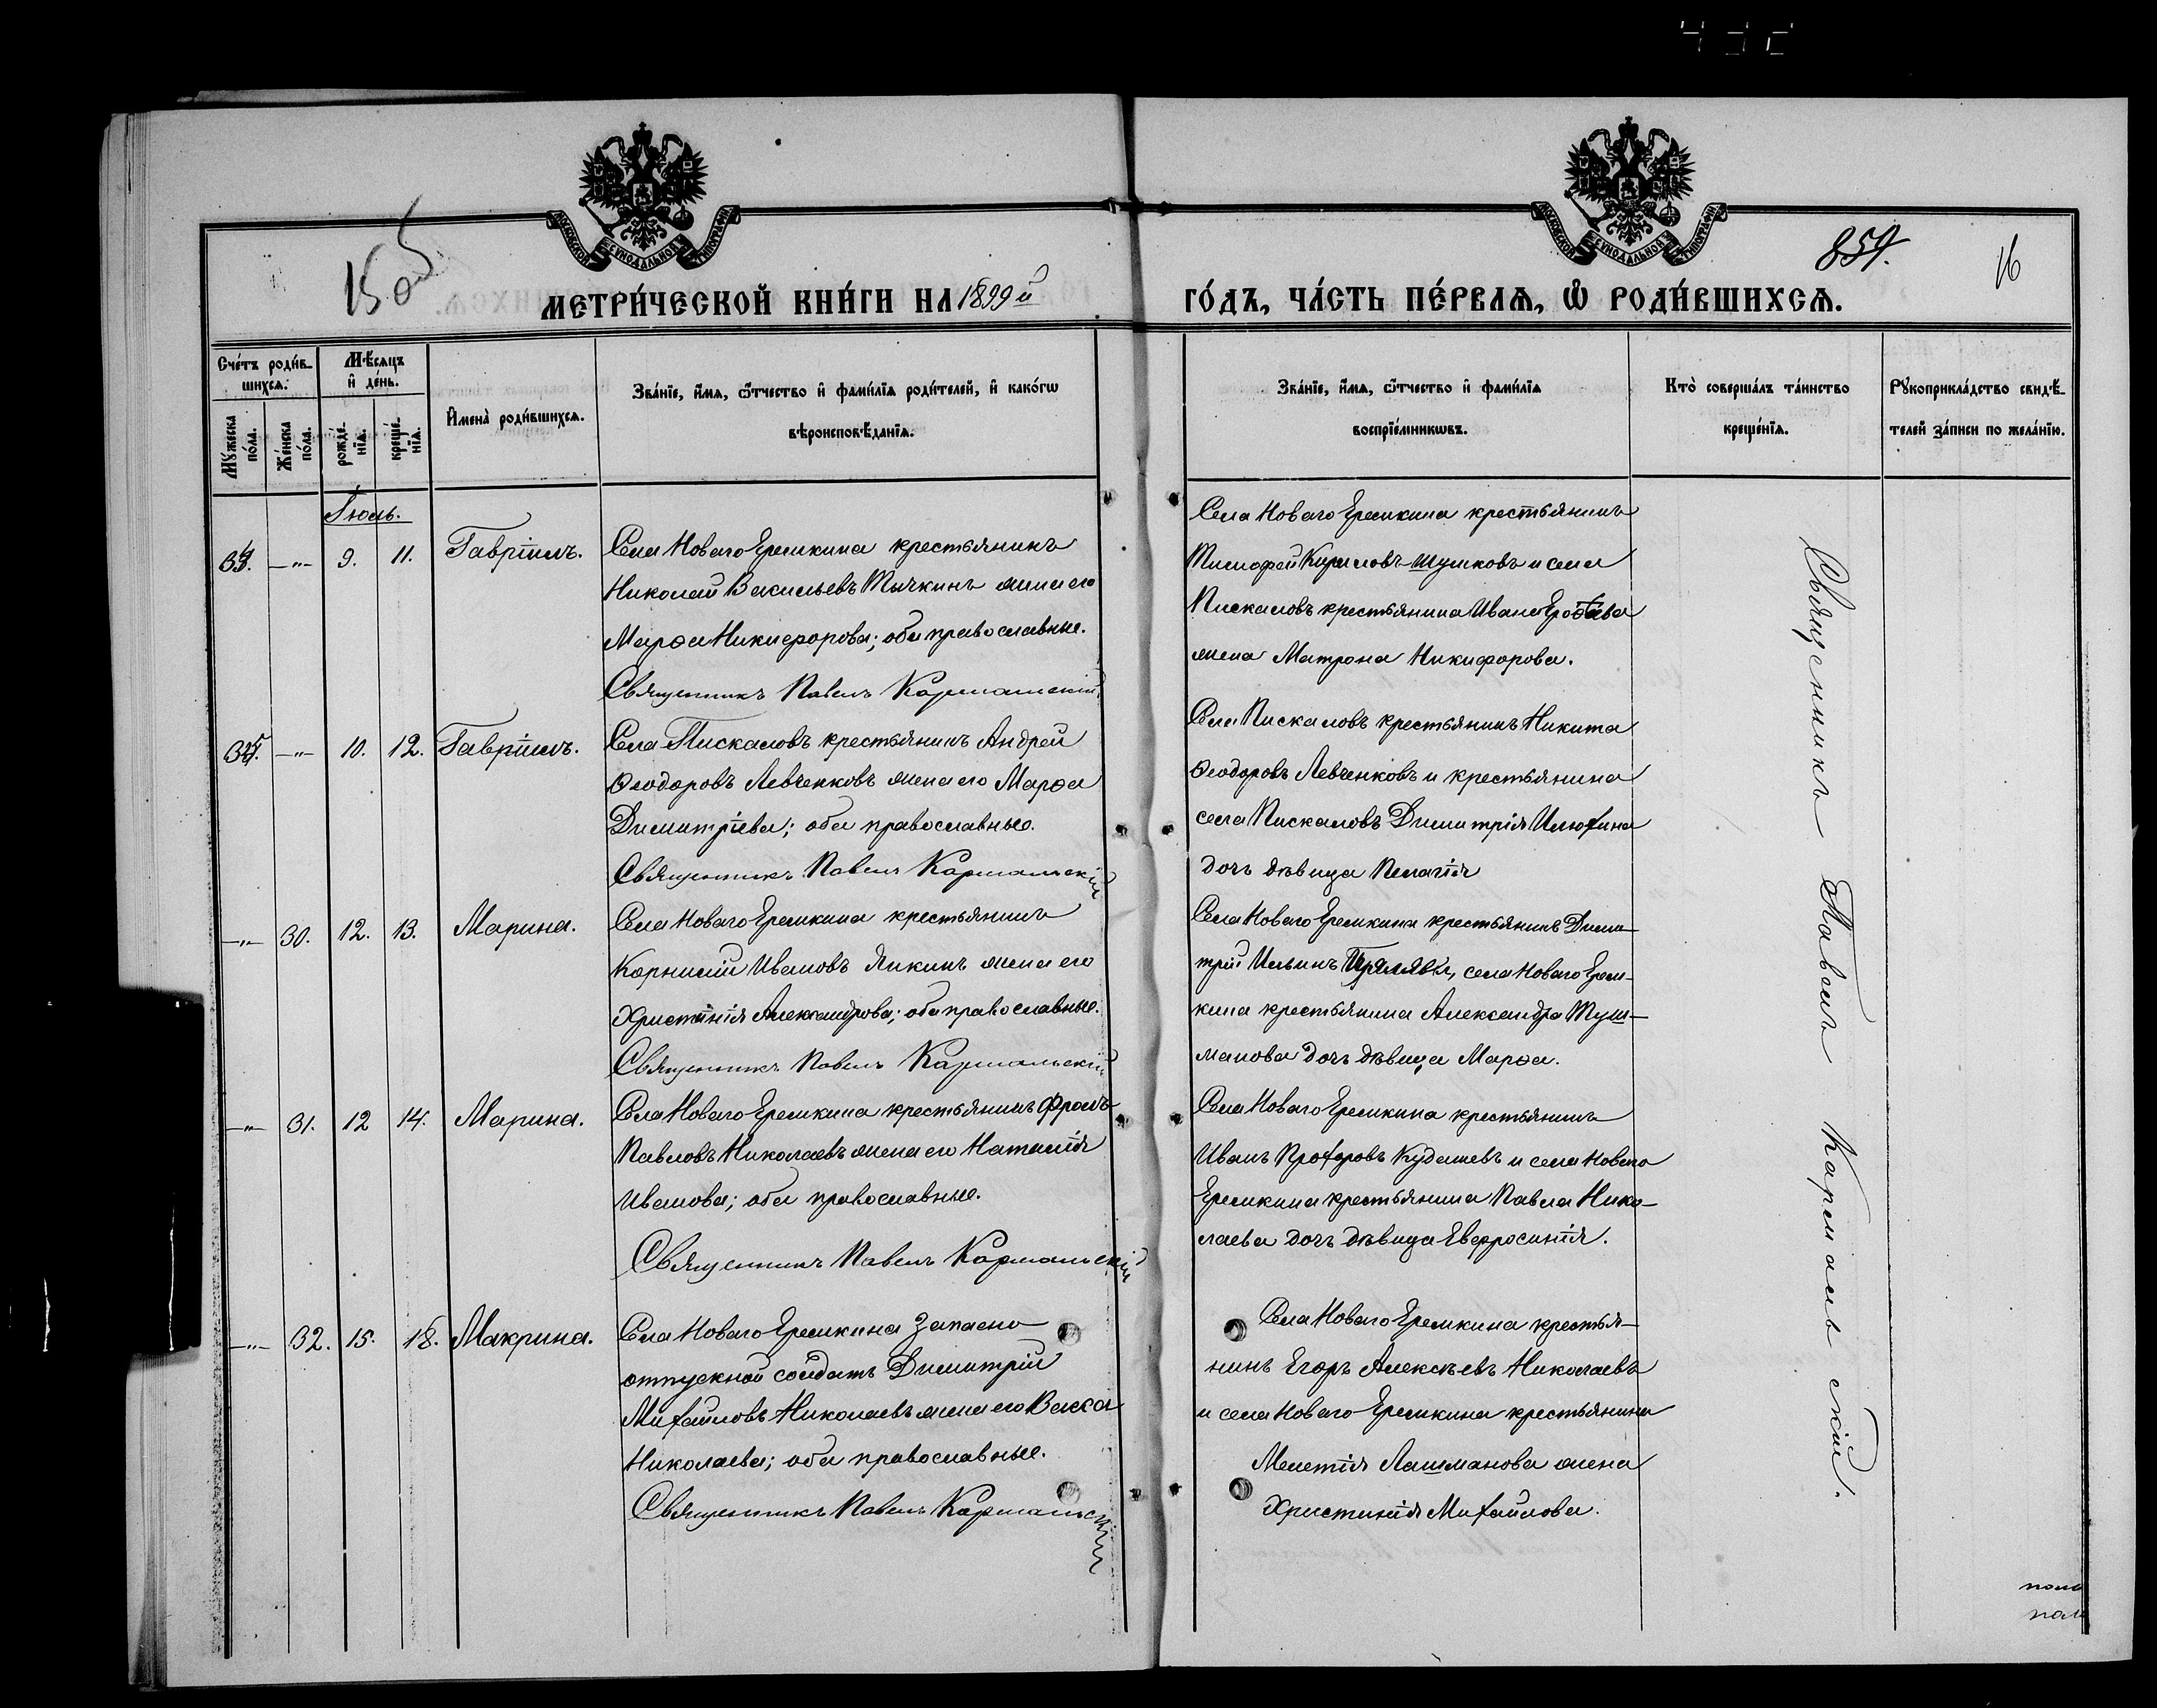 МОСКОВСКОЙ СУНОДАЛЬНОЙ ТИПОГРАФІИ
МОСКОВСКОЙ СУНОДАЛЬНОЙ ТИПОГРАФІИ
854.
16
МЕТРИ́ЧЕСКОЙ КНИ́ГИ НА 1899й
ГО́ДЪ, ЧА́СТЬ ПЕ́РВАѦ, Ѽ РОДИ́ВШИХСѦ.
Сче́тъ роди́в-
шихсѧ.
Мꙋ́жеска по́ла.
Же́нска по́ла.
Мѣ́сѧцъ
и҆ де́нь.
рожде́-нїѧ.
креще́-нїѧ.
И҆мена̀ роди́вшихсѧ.
Зва́нїе, и҆́мѧ, ѻ҆́тчество и҆ фами́лїѧ роди́телей, и҆ како́гѡ
вѣроисповѣ́данїѧ.
Зва́нїе, и҆́мѧ, ѻ҆́тчество и҆ фами́лїѧ
воспрїе́мникѡвъ.
Кто̀ соверша́лъ та́инство
креще́нїѧ.
Рꙋкоприкла́дство свидѣ́-
телей за́писи по жела́нїю.
Іюль.
34. —"— 9. 11. Гавріилъ.
Села Новаго Еремкина крестьянинъ
Николай Васильевъ Тычкинъ жена его
Марѳа Никифорова; оба православные.
Священникъ Павелъ Кармальскій
Села Новаго Еремкина крестьянинъ
Тимофей Кириловъ Шушковъ и села
Пискаловъ крестьянина Ивана
жена Матрона Никифорова.
35. —"— 10. 12. Гавріилъ.
Села Пискаловъ крестьянинъ Андрей
Ѳеодоровъ Левченковъ жена его Марѳа
Димитріева; оба православные.
Священникъ Павелъ Кармальскій
Села Пискаловъ крестьянинъ Никита
Ѳеодоровъ Левченковъ и крестьянина
села Пискаловъ Димитрія Илюхина
дочь дѣвица Пелагія
—"— 30. 12. 13. Марина.
Села Новаго Еремкина крестьянинъ
Корнилій Ивановъ Янкинъ жена его
Христинія Александрова; оба православные.
Священникъ Павелъ Кармальскій
Села Новаго Еремкина крестьянинъ Дими-
трій Ильинъ села Новаго Ерем-
кина крестьянина Александра Туш-
манова дочь дѣвица Марѳа.
—"— 31. 12 14. Марина.
Села Новаго Еремкина крестьянинъ Фролъ
Павловъ Николаевъ жена его Наталія
Иванова; оба православные.
Священникъ Павелъ Кармальскій
Села Новаго Еремкина крестьянинъ
Иванъ Прохоровъ Кудашевъ и села Новаго
Еремкина крестьянина Павла Нико-
лаева дочь дѣвица Евфросинія.
—"— 32. 15. 18. Макрина.
Села Новаго Еремкина запасно
отпускной солдатъ Димитрій
Михайловъ Николаевъ жена его Васса
Николаева; оба православные.
Священникъ Павелъ Кармальскій
Села Новаго Еремкина крестья-
нинъ Егоръ Алексѣевъ Николаевъ
и села Новаго Еремкина крестьянина
Мелетія Лашманова жена
Христинія Михайлова.
Священникъ Павелъ Кармальскій.